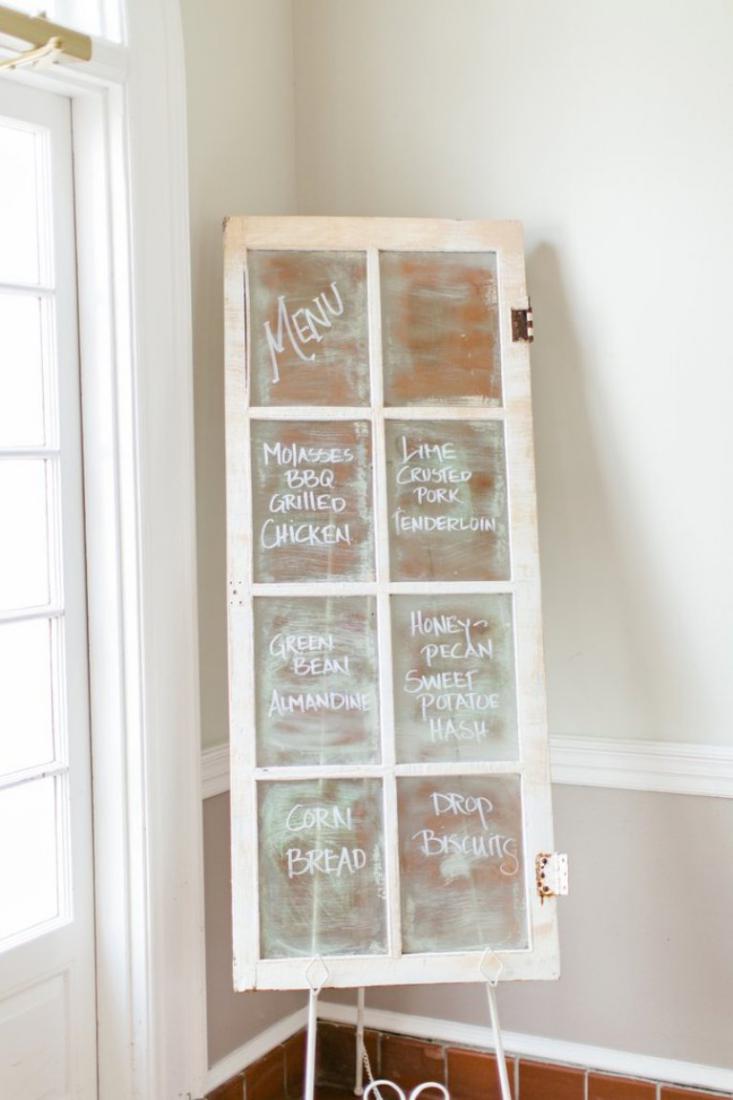 Menu
Molasses
BBQ
Grilled
Chicken
Lime
Crusted
Pork
Tenderloin
Green
Bean
Almandine
Honey-
Pecan
Sweet
Potatoe
Hash
Corn
Bread
Drop
Biscuits